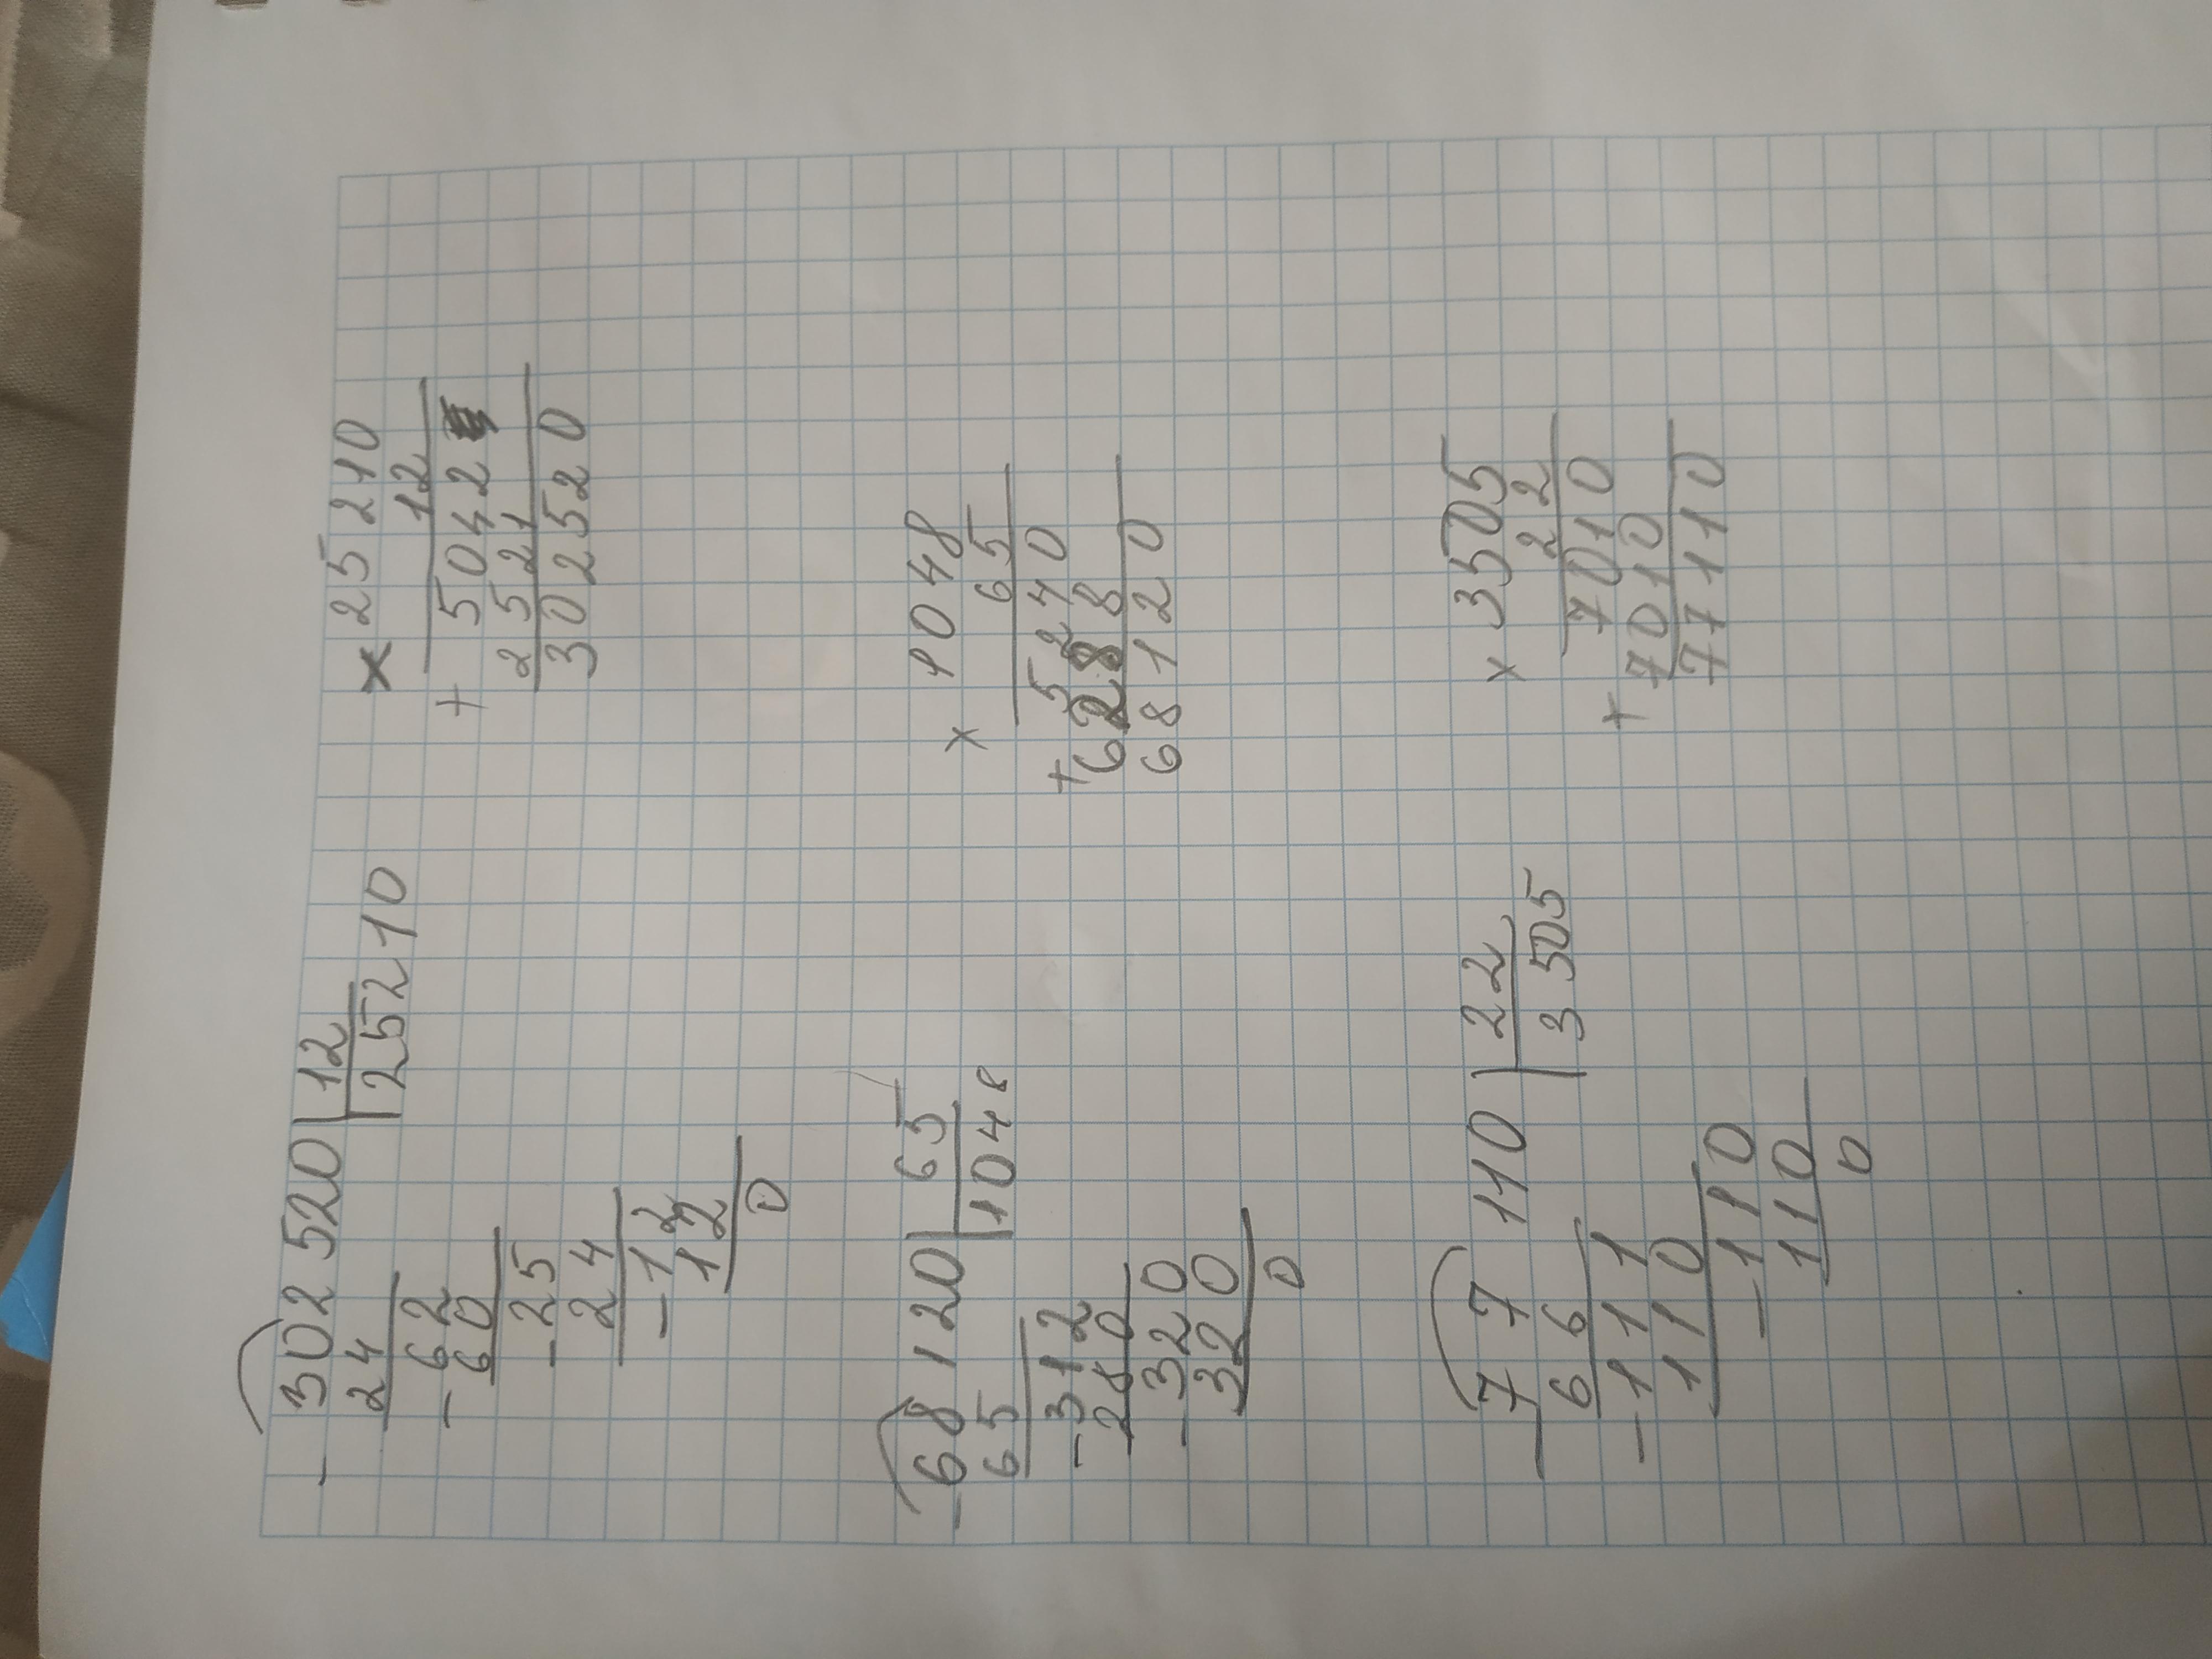 302520 | 12
- 24 25210
- 62
60
- 25
24
- 12
12
0
× 25210
12
+ 5042
2521
302520
68120 | 65
- 65 1048
- 312
280
- 320
320
0
× 1048
65
+ 5240
6288
68120
77110 | 22
- 66 3505
- 111
110
- 110
110
0
× 3505
22
+ 7010
7010
77110